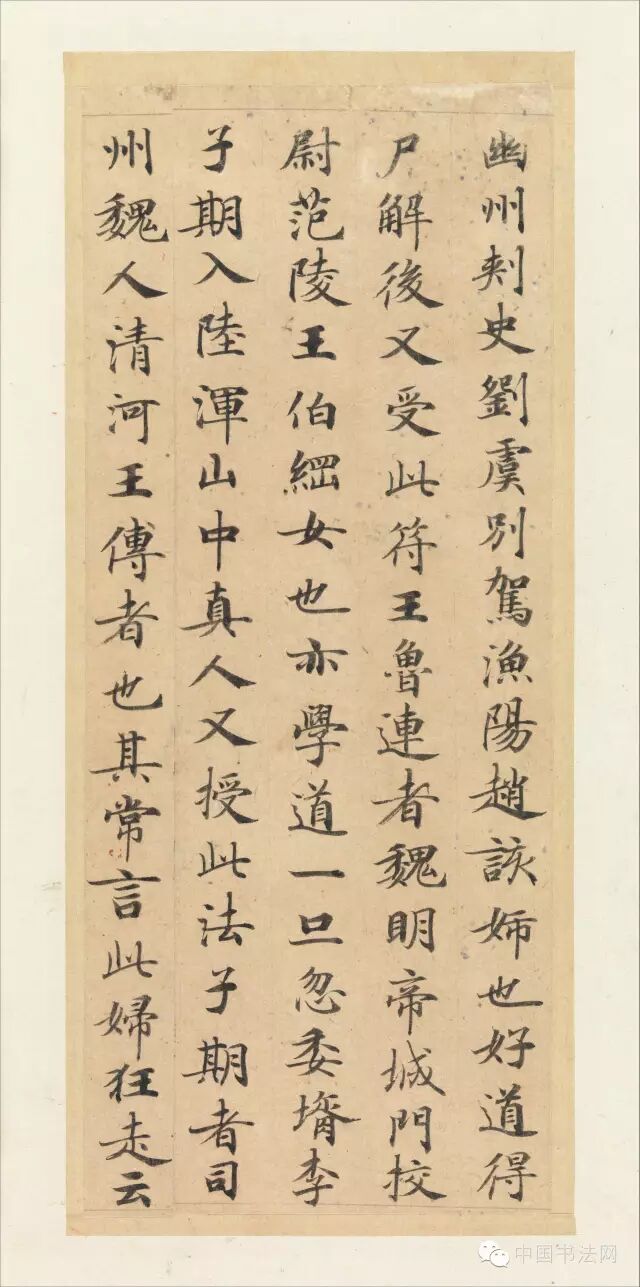 幽州刾史劉虞別駕漁陽趙該姉也好道得
尸解後又受此符王魯連者魏明帝城門挍
尉范陵王伯綱女也亦學道一旦忽委壻李
子期入陸渾山中真人又授此法子期者司
州魏人清河王傅者也其常言此婦狂走云
中国书法网